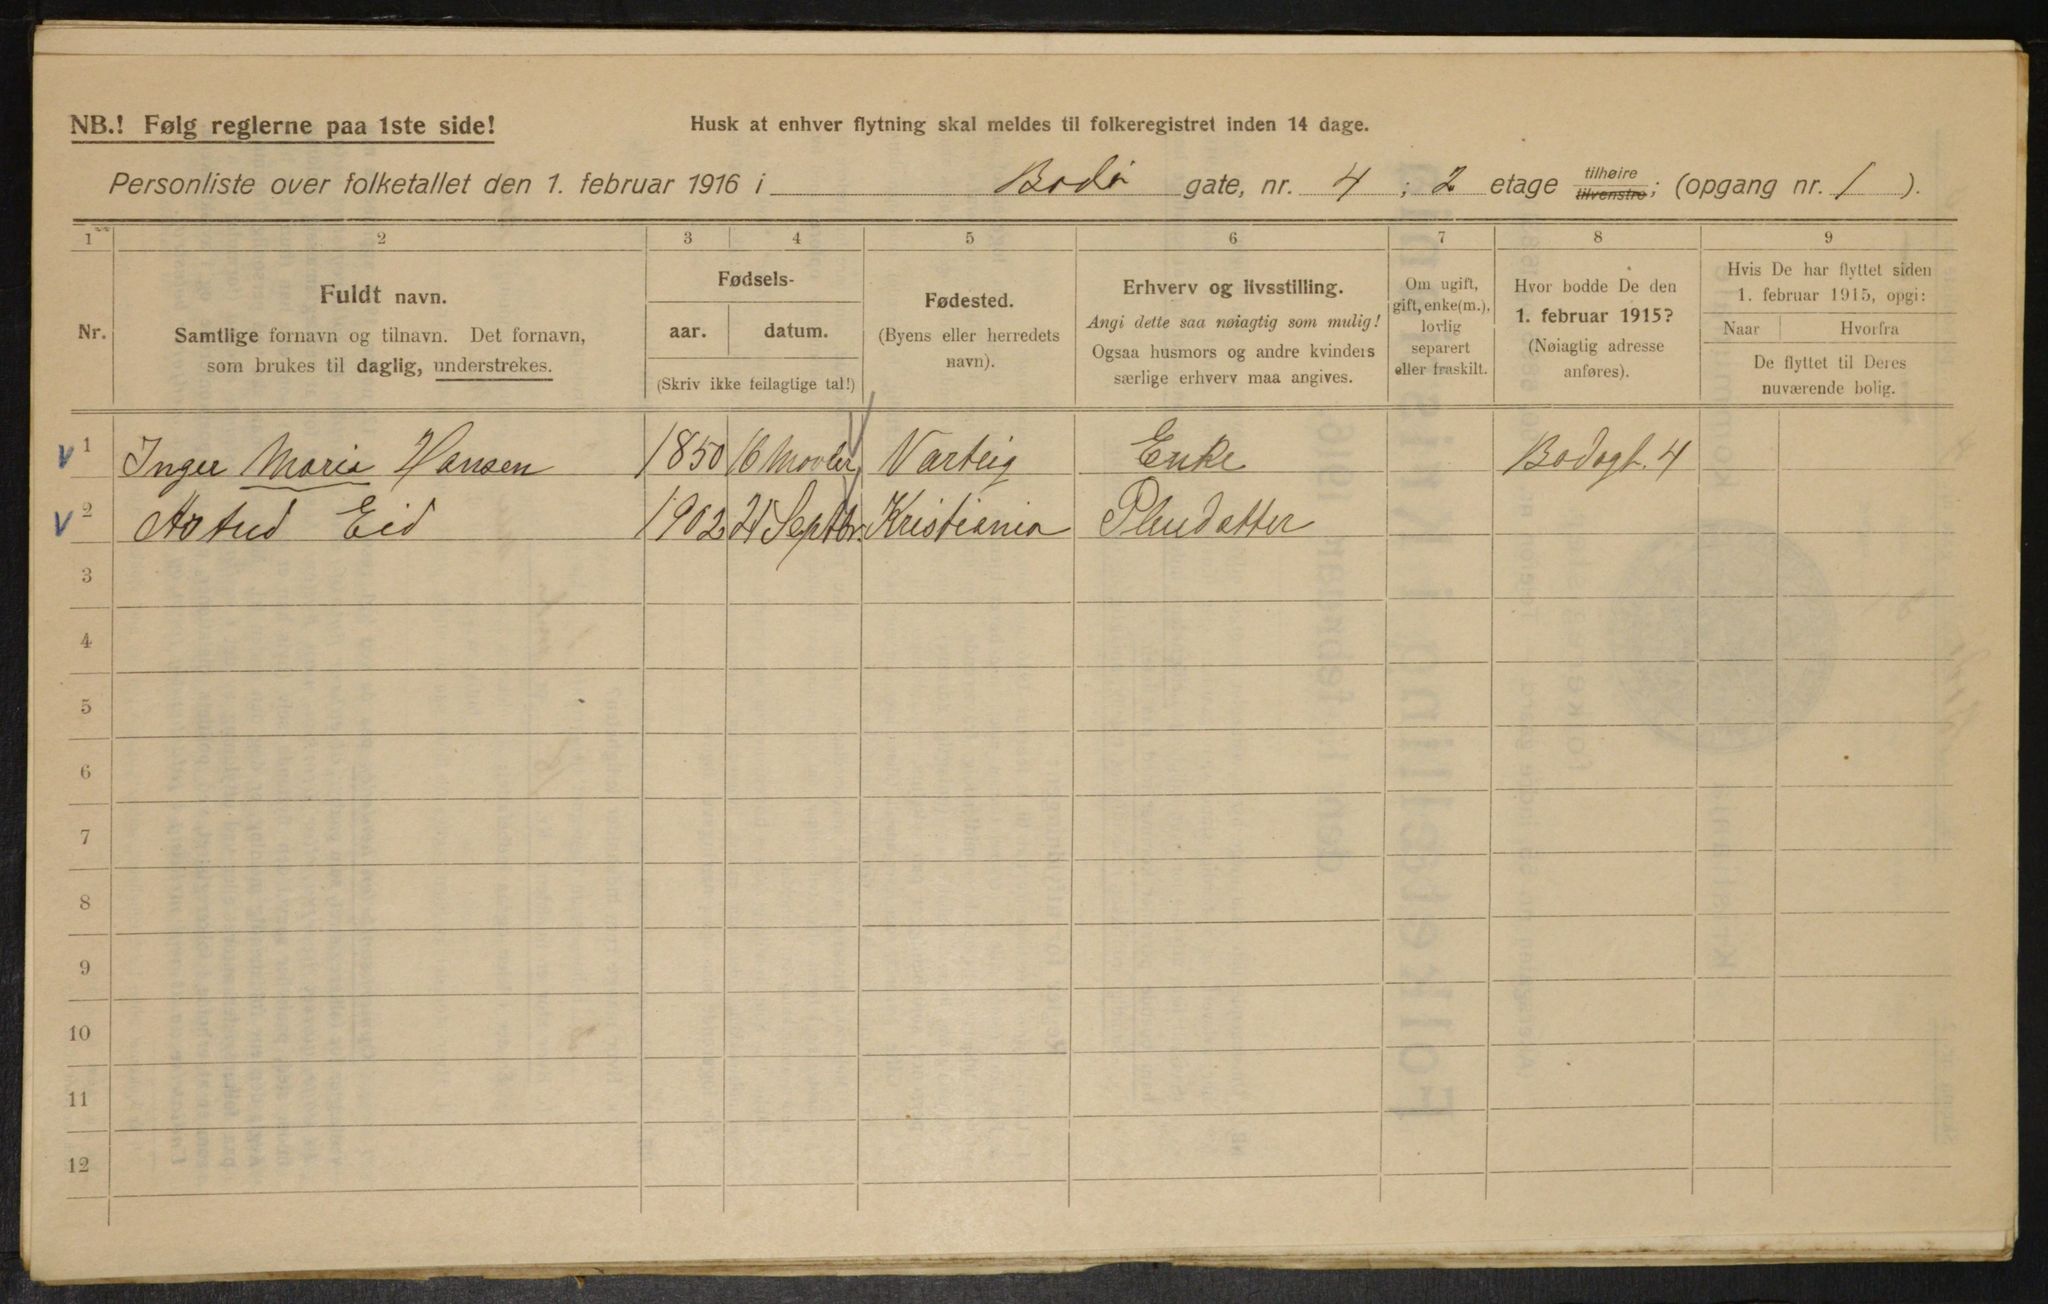 NB.! Følg reglerne paa 1ste side!
Husk at enhver flytning skal meldes til folkeregistret inden 14 dage.
Personliste over folketallet den 1. februar 1916 i Bodø gate, nr. 4 ; 2 etage tilhøire tilvenstre; (opgang nr. 1 ).
1 2 3 4 5 6 7 8 9
Nr.
Fuldt navn.
Samtlige fornavn og tilnavn. Det fornavn,
som brukes til daglig, understrekes.
Fødsels-
aar. datum.
(Skriv ikke feilagtige tal!)
Fødested.
(Byens eller herredets
navn).
Erhverv og livsstilling.
Angi dette saa nøiagtig som mulig!
Ogsaa husmors og andre kvinders
særlige erhverv maa angives.
Om ugift,
gift, enke(m.),
lovlig
separert
eller fraskilt.
Hvor bodde De den
1. februar 1915?
(Nøiagtig adresse
anføres).
Hvis De har flyttet siden
1. februar 1915, opgi:
Naar Hvorfra
De flyttet til Deres
nuværende bolig.
V 1 Inger Maria Hansen 1850 16 Novber Varteig Enke Bodogt. 4
V 2 Eid 1902 Septbr. Kristiania Pleiedatter
3
4
5
6
7
8
9
10
11
12